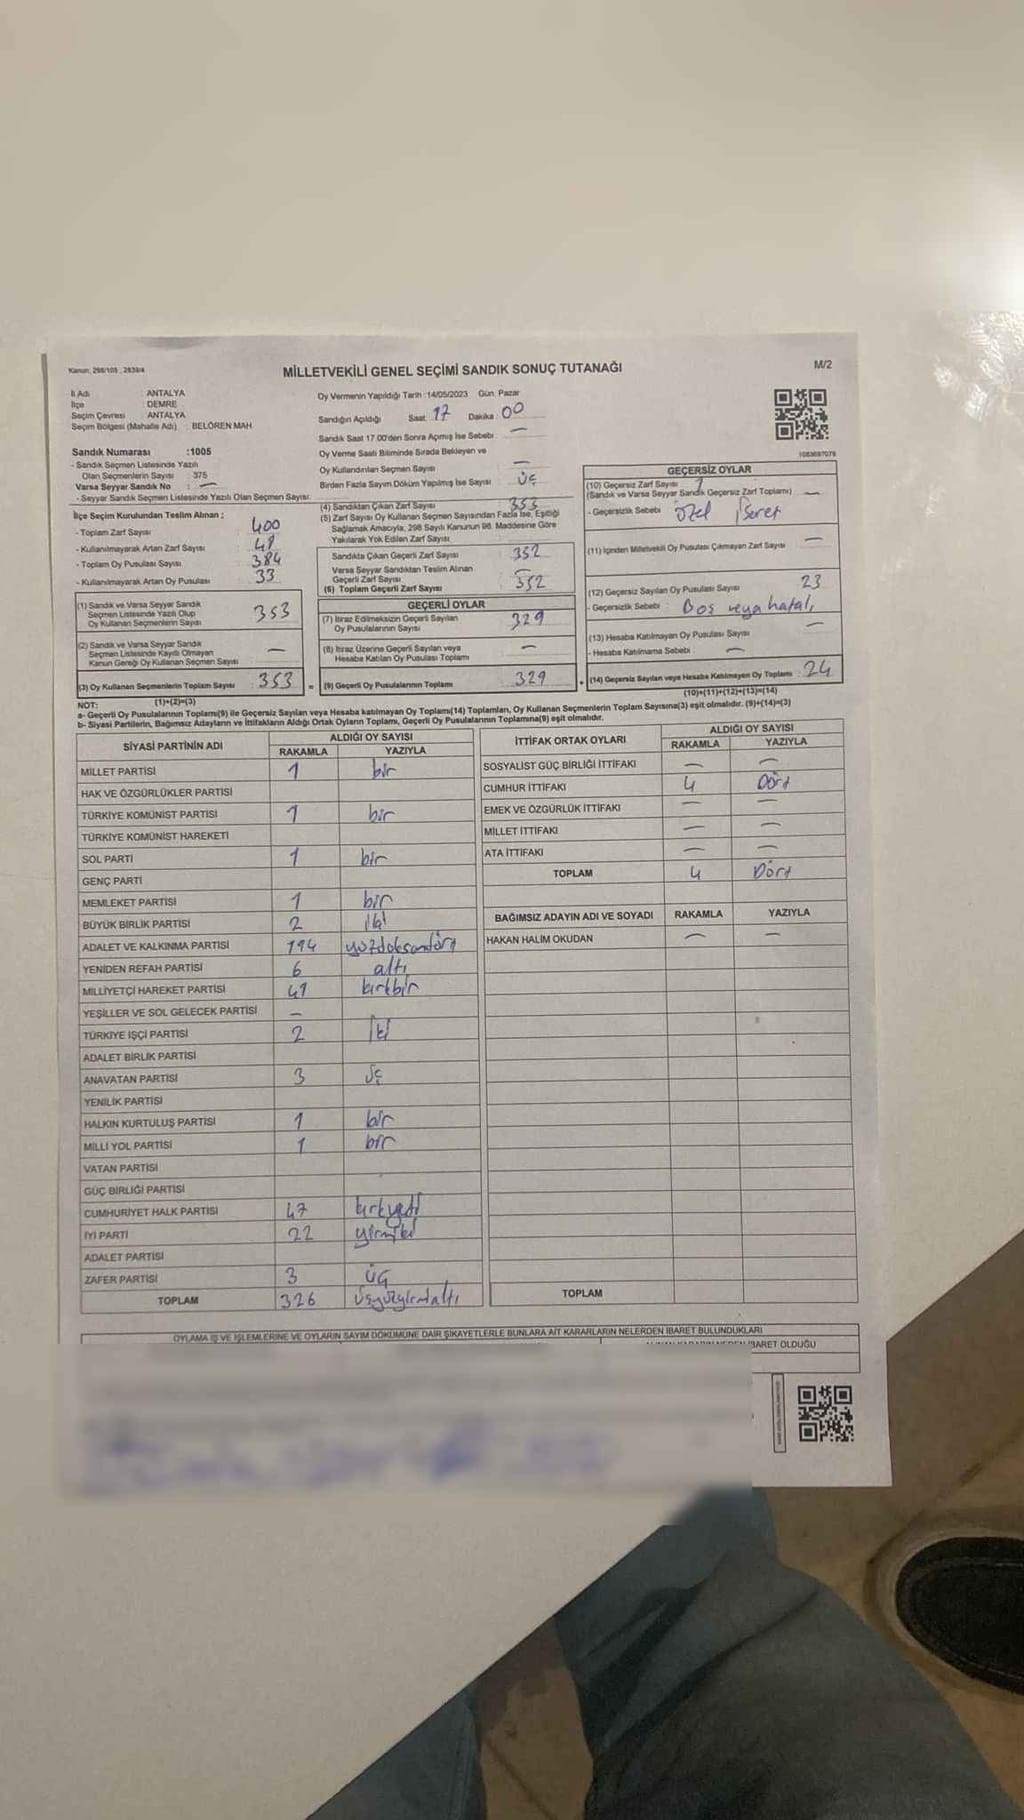 Kanun: 298/105 , 2839/4
MİLLETVEKİLİ GENEL SEÇİMİ SANDIK SONUÇ TUTANAĞI
M/2
İl Adı : ANTALYA
İlçe : DEMRE
Seçim Çevresi : ANTALYA
Seçim Bölgesi (Mahalle Adı) : BELÖREN MAH
Sandık Numarası :1005
- Sandık Seçmen Listesinde Yazılı
Olan Seçmenlerin Sayısı : 375
Varsa Seyyar Sandık No : —
- Seyyar Sandık Seçmen Listesinde Yazılı Olan Seçmen Sayısı:
Oy Vermenin Yapıldığı Tarih :14/05/2023 Gün: Pazar
Sandığın Açıldığı Saat: 17 Dakika: 00
Sandık Saat 17.00'den Sonra Açımış İse Sebebi : —
Oy Verme Saati Bitiminde Sırada Bekleyen ve
Oy Kullandırılan Seçmen Sayısı —
Birden Fazla Seyim Döküm Yapılmış İse Sayısı : üç
1083697079
İlçe Seçim Kurulundan Teslim Alınan ;
- Toplam Zarf Sayısı : 400
- Kullanılmayarak Artan Zarf Sayısı : 48
- Toplam Oy Pusulası Sayısı : 384
- Kullanılmayarak Artan Oy Pusulası : 33
(1) Sandık ve Varsa Seyyar Sandık
Seçmen Listesinde Yazılı Olup
Oy Kullanan Seçmenlerin Sayısı 353
(2) Sandık ve Varsa Seyyar Sandık
Seçmen Listesinde Kayıtlı Olmayan
Kanun Gereği Oy Kullanan Seçmen Sayısı —
(3) Oy Kullanan Seçmenlerin Toplam Sayısı 353
(1)+(2)=(3)
(4) Sandıktan Çıkan Zarf Sayısı : 353
(5) Zarf Sayısı Oy Kullanan Seçmen Sayısından Fazla İse, Eşitliği
Sağlamak Amacıyla, 298 Sayılı Kanunun 98. Maddesine Göre
Yakılarak Yok Edilen Zarf Sayısı
Sandıkta Çıkan Geçerli Zarf Sayısı 352
Varsa Seyyar Sandıktan Teslim Alınan
Geçerli Zarf Sayısı —
(6) Toplam Geçerli Zarf Sayısı 352
GEÇERLİ OYLAR
(7) İtiraz Edilmeksizin Geçerli Sayılan
Oy Pusulalarının Sayısı 329
(8) İtiraz Üzerine Geçerli Sayılan veya
Hesaba Katılan Oy Pusulası Toplamı —
= (9) Geçerli Oy Pusulalarının Toplamı 329
GEÇERSİZ OYLAR
(10) Geçersiz Zarf Sayısı 1
(Sandık ve Varsa Seyyar Sandık Geçersiz Zarf Toplamı) —
- Geçersizlik Sebebi : Özel işaret
(11) İçinden Milletvekili Oy Pusulası Çıkmayan Zarf Sayısı —
(12) Geçersiz Sayılan Oy Pusulası Sayısı 23
- Geçersizlik Sebebi : Boş veya hatalı
(13) Hesaba Katılmayan Oy Pusula Sayısı —
- Hesaba Katılmama Sebebi : —
+ (14) Geçersiz Sayılan veya Hesaba Katılmayan Oy Toplamı 24
(10)+(11)+(12)+(13)=(14)
NOT:
a- Geçerli Oy Pusulalarının Toplamı(9) ile Geçersiz Sayılan veya Hesaba katılmayan Oy Toplamı(14) Toplamları, Oy Kullanan Seçmenlerin Toplam Sayısına(3) eşit olmalıdır. (9)+(14)=(3)
b- Siyasi Partilerin, Bağımsız Adayların ve İttifakların Aldığı Ortak Oyların Toplamı, Geçerli Oy Pusulalarının Toplamına(9) eşit olmalıdır.
SİYASİ PARTİNİN ADI ALDIĞI OY SAYISI
RAKAMLA YAZIYLA
MİLLET PARTİSİ 1 bir
HAK VE ÖZGÜRLÜKLER PARTİSİ
TÜRKİYE KOMÜNİST PARTİSİ 1 bir
TÜRKİYE KOMÜNİST HAREKETİ
SOL PARTİ 1 bir
GENÇ PARTİ
MEMLEKET PARTİSİ 1 bir
BÜYÜK BİRLİK PARTİSİ 2 iki
ADALET VE KALKINMA PARTİSİ 194 yüzdoksandört
YENİDEN REFAH PARTİSİ 6 altı
MİLLİYETÇİ HAREKET PARTİSİ 41 kırkbir
YEŞİLLER VE SOL GELECEK PARTİSİ —
TÜRKİYE İŞÇİ PARTİSİ 2 iki
ADALET BİRLİK PARTİSİ
ANAVATAN PARTİSİ 3 üç
YENİLİK PARTİSİ
HALKIN KURTULUŞ PARTİSİ 1 bir
MİLLİ YOL PARTİSİ 1 bir
VATAN PARTİSİ
GÜÇ BİRLİĞİ PARTİSİ
CUMHURİYET HALK PARTİSİ 47 kırkyedi
İYİ PARTİ 22 yirmiiki
ADALET PARTİSİ
ZAFER PARTİSİ 3 üç
TOPLAM 326 üçyüzyirmialtı
İTTİFAK ORTAK OYLARI ALDIĞI OY SAYISI
RAKAMLA YAZIYLA
SOSYALİST GÜÇ BİRLİĞİ İTTİFAKI — —
CUMHUR İTTİFAKI 4 Dört
EMEK VE ÖZGÜRLÜK İTTİFAKI — —
MİLLET İTTİFAKI — —
ATA İTTİFAKI — —
TOPLAM 4 Dört
BAĞIMSIZ ADAYIN ADI VE SOYADI RAKAMLA YAZIYLA
HAKAN HALİM OKUDAN — —
TOPLAM
OYLAMA İŞ VE İŞLEMLERİNE VE OYLARIN SAYIM DÖKÜMÜNE DAİR ŞİKAYETLERLE BUNLARA AİT KARARLARIN NELERDEN İBARET BULUNDUKLARI
İBARET OLDUĞU